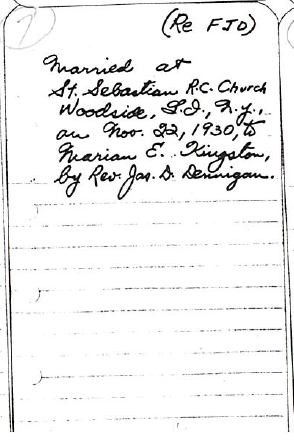 7
(Re FJD)
Married at
St. Sebastian R.C. Church
Woodside, L.I., N.Y.,
on Nov. 22, 1930, to
Marian E. Kingston,
by Rev. Jas. D. Dennigan.